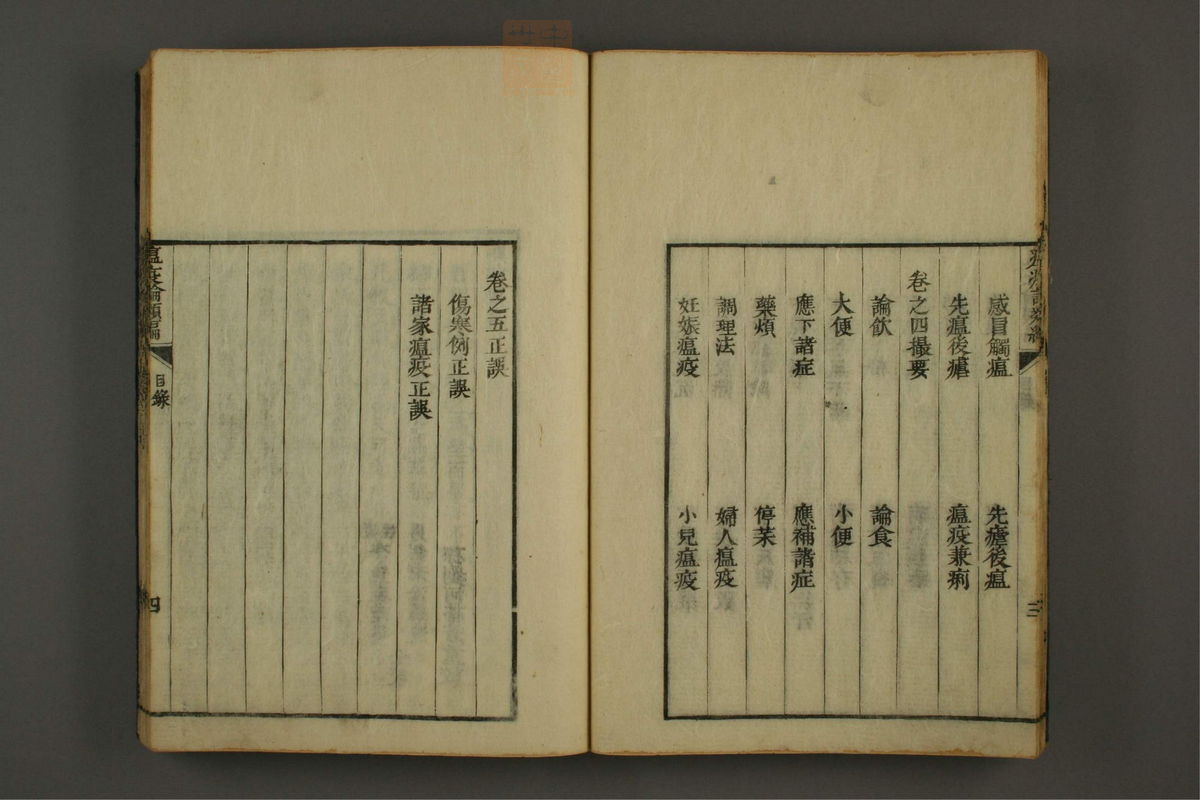 感冒觸瘟 先瘧後瘟
先瘟後瘧 瘟疫兼痢
卷之四撮要
論飲 論食
大便 小便
應下諸症 應補諸症
藥煩 停藥
調理法 婦人瘟疫
妊娠瘟疫 小兒瘟疫
三
卷之五正誤
傷寒例正誤
諸家瘟疫正誤
瘟疫論類編
目錄
四